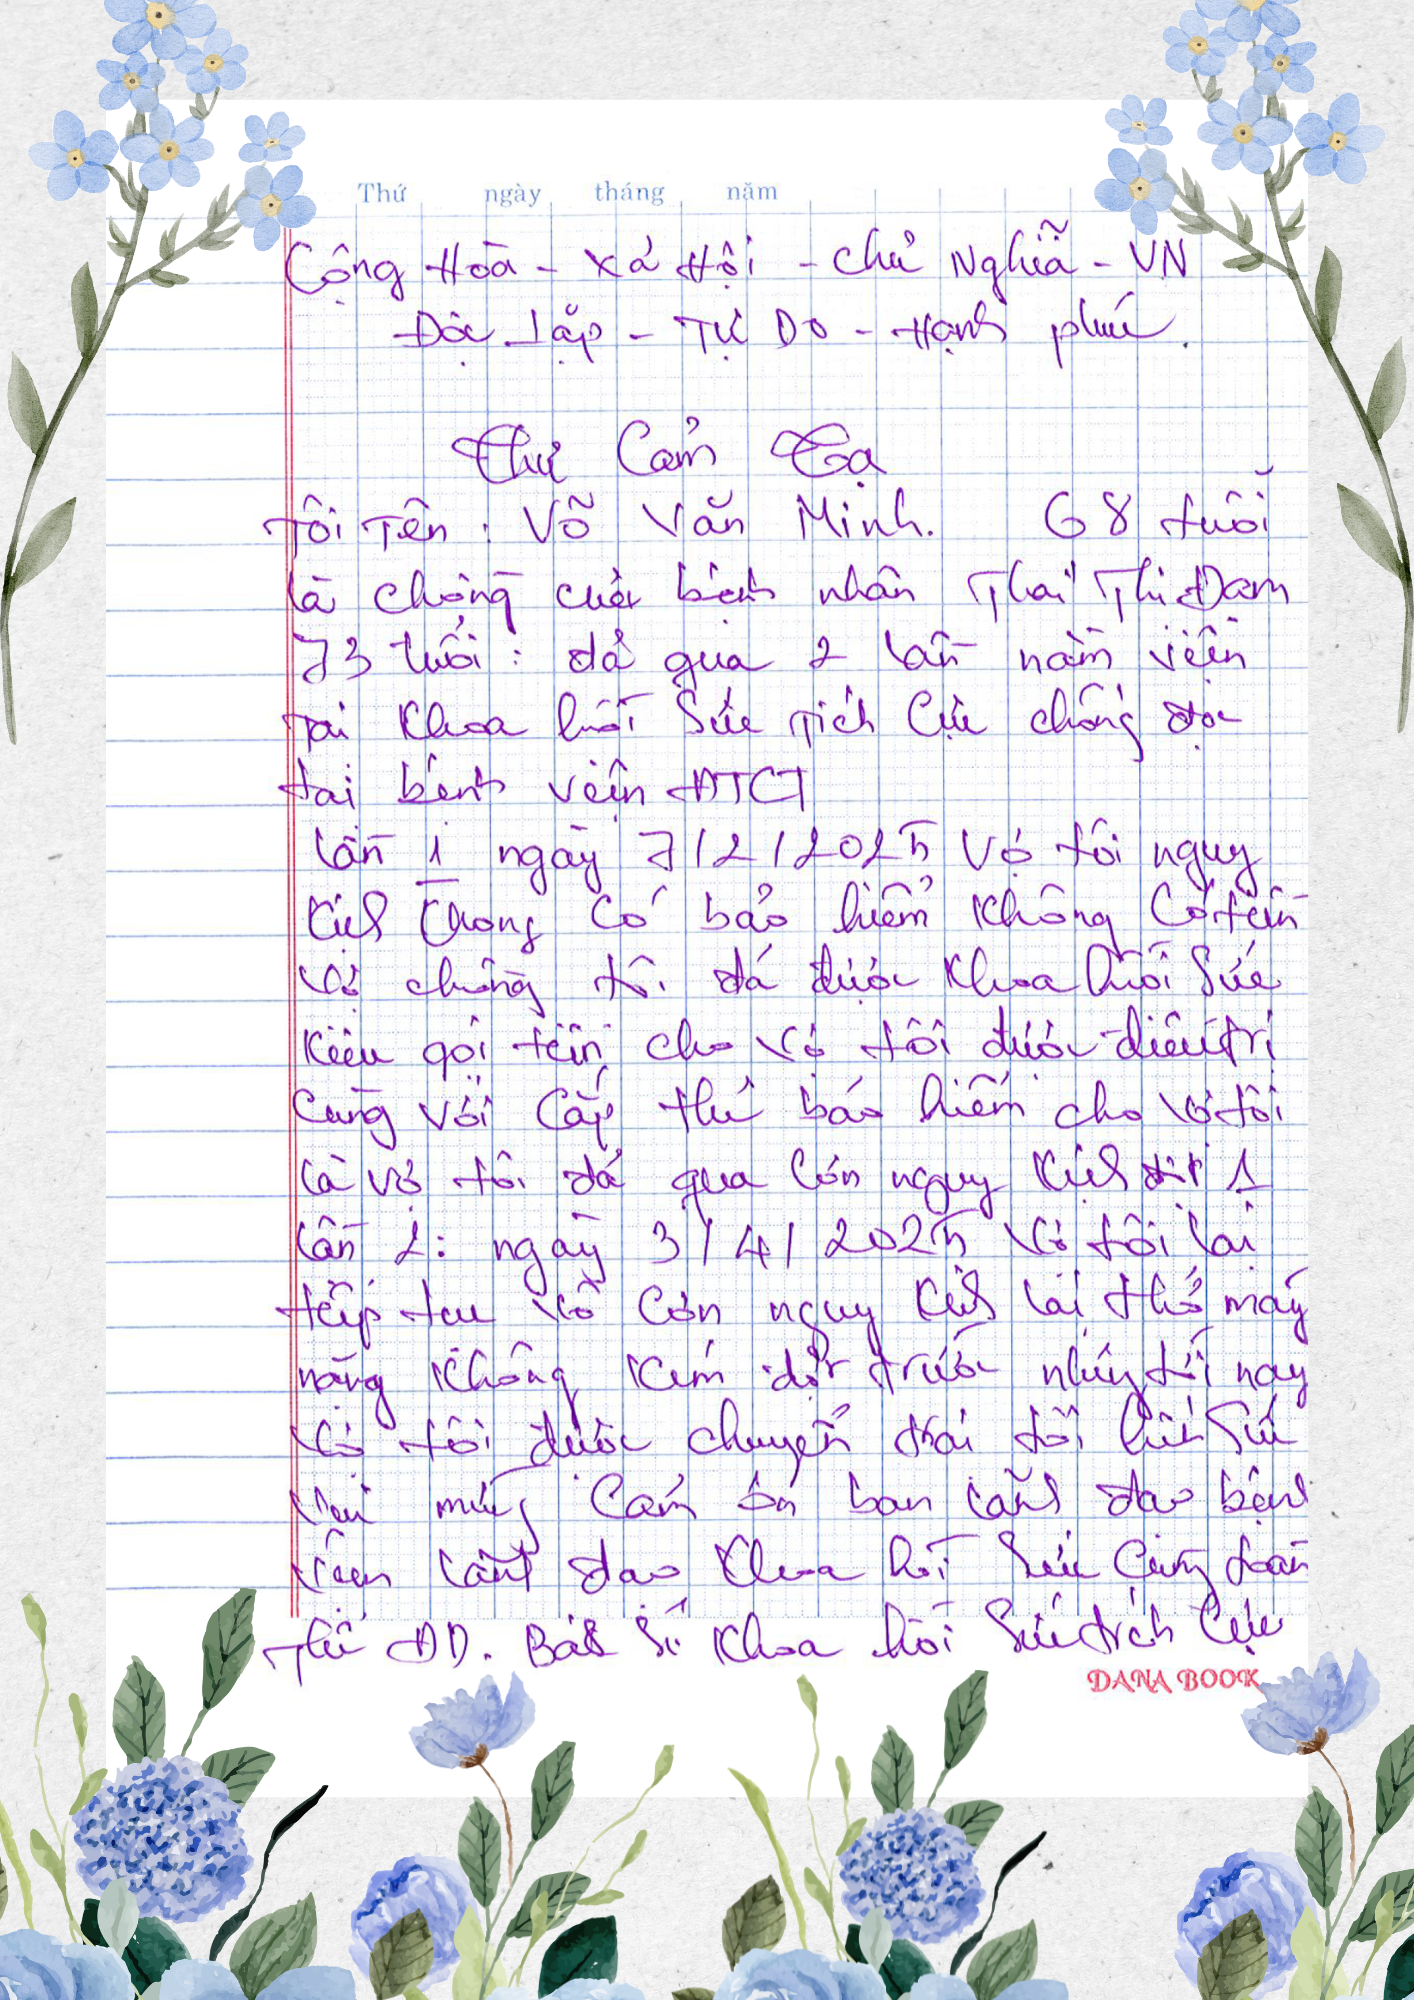 Thứ ngày tháng năm
Cộng Hòa - Xả Hội - Chủ Nghĩã - VN
Độc Lặp - Tự Do - Hạnh phúc.
Thư Cảm Tạ
Tôi Tên : Võ Văn Minh. 68 tuổi
là chồng của bệnh nhân Thái Thị Đam
73 tuổi : đả qua 2 lần nằm viện
tại Khoa hồi Sức Tích Cực chống độc
tại bệnh viện ĐTCT
lần 1 ngày 7/2/2025 Vợ tôi nguy
Kịch Không Có bảo hiểm Không Có tiền
Vợ chồng tôi đá được Khoa hồi Sức
Kiêu gọi tiền cho Vợ tôi được điều trị
Cùng Với Cấp thẻ bảo hiểm cho Vợ tôi
là vợ tôi đá qua Cơn nguy Kịch đợt 1
lần 2: ngày 3/4/2025 Vợ tôi lại
tiếp tục Cơn nguy Kịch lại thở máy
nặng Không Kém đợt trước nhưng tới nay
Vợ tôi được chuyển trại tôi hết Sức
Vui mừng Cám ơn ban lãnh đạo bệnh
viện lãnh đạo Khoa hồi Sức Cùng toàn
thể ĐD. Bác Sĩ Khoa hồi Sức tích Cực
DANA BOOK